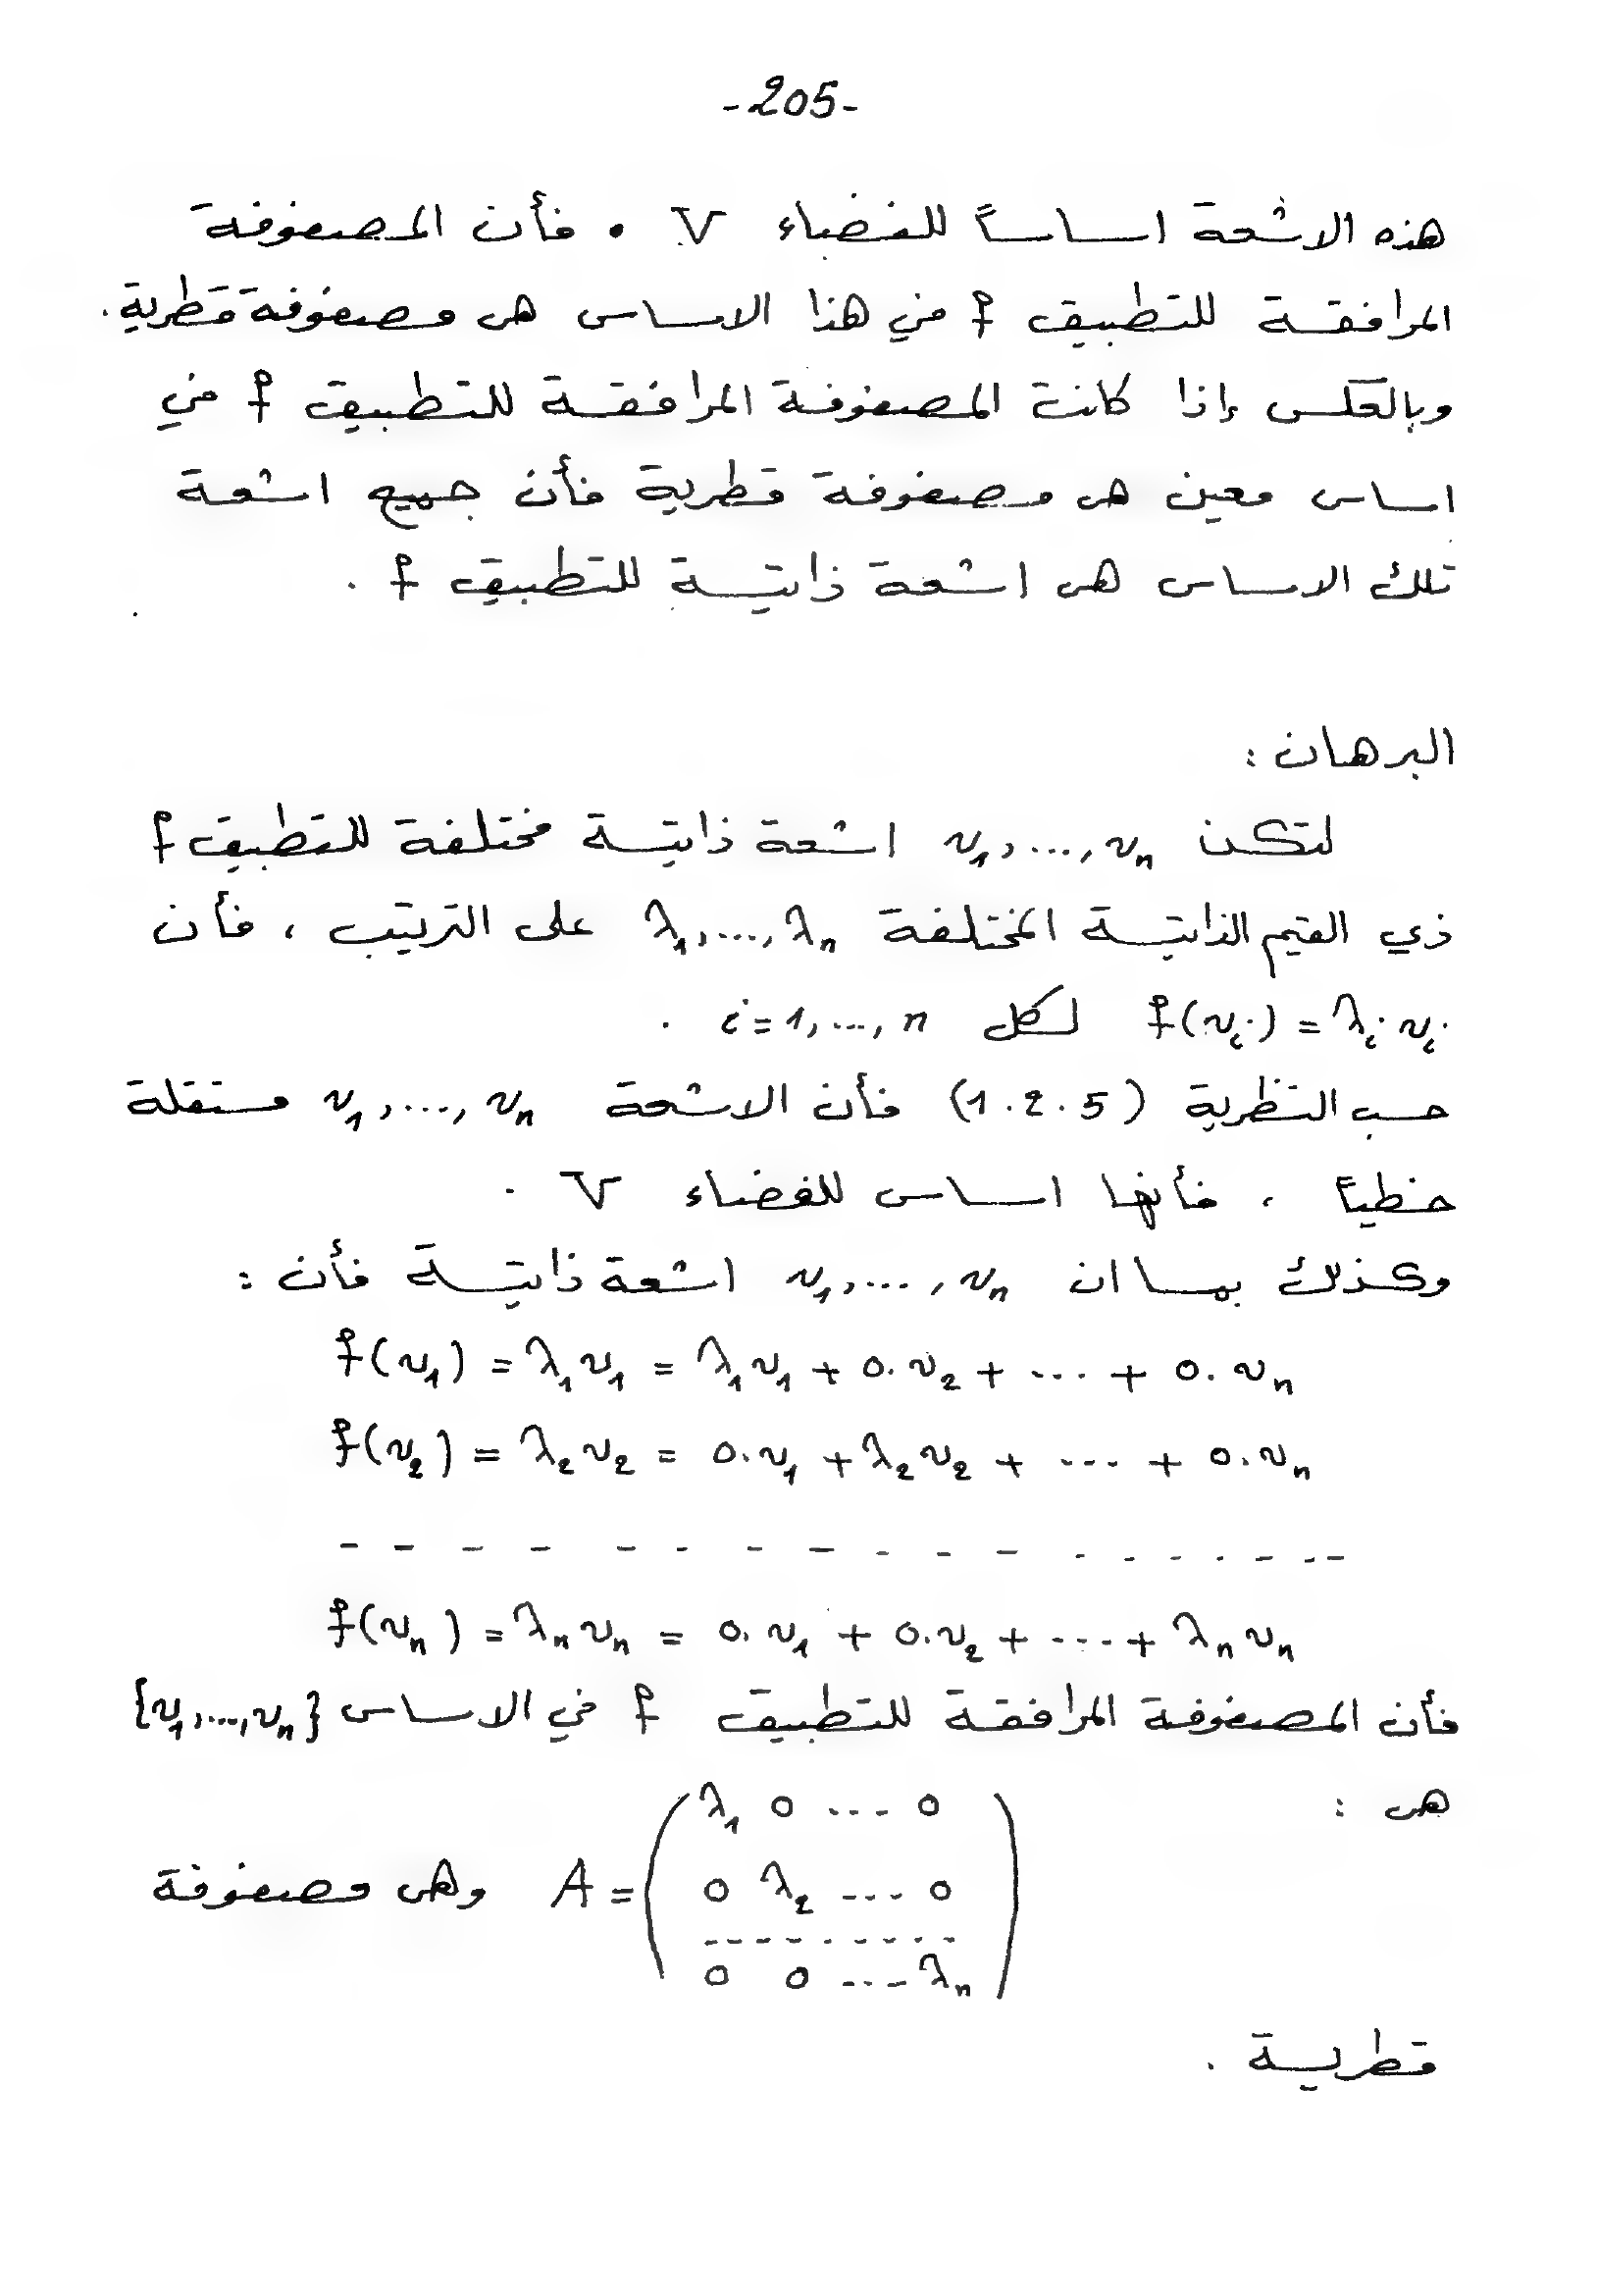 -205-
هذه الاشعة اساساً للفضاء V . فأن المصفوفة
المرافقة للتطبيق f في هذا الاساس هي مصفوفة قطرية .
وبالعكس إذا كانت المصفوفة المرافقة للتطبيق f في
اساس معين هي مصفوفة قطرية فأن جميع اشعة
تلك الاساس هي اشعة ذاتية للتطبيق f .
البرهان :
لتكن v₁,...,vₙ اشعة ذاتية مختلفة للتطبيق f
ذي القيم الذاتية المختلفة λ₁,...,λₙ على الترتيب ، فأن
f(vᵢ) = λᵢ vᵢ لكل i = 1,...,n .
حسب النظرية (1.2.5) فأن الاشعة v₁,...,vₙ مستقلة
خطياً ، فأنها اساس للفضاء V .
وكذلك بما ان v₁,...,vₙ اشعة ذاتية فأن :
f(v₁) = λ₁v₁ = λ₁v₁ + 0.v₂ + ... + 0.vₙ
f(v₂) = λ₂v₂ = 0.v₁ + λ₂v₂ + ... + 0.vₙ
- - - - - - - - - - - - - - - - - -
f(vₙ) = λₙvₙ = 0.v₁ + 0.v₂ + ... + λₙvₙ
فأن المصفوفة المرافقة للتطبيق f في الاساس {v₁,...,vₙ}
هي :
λ₁ 0 ... 0
A = ( 0 λ₂ ... 0 ) وهي مصفوفة
- - - - - - - - -
0 0 ... λₙ
قطرية .